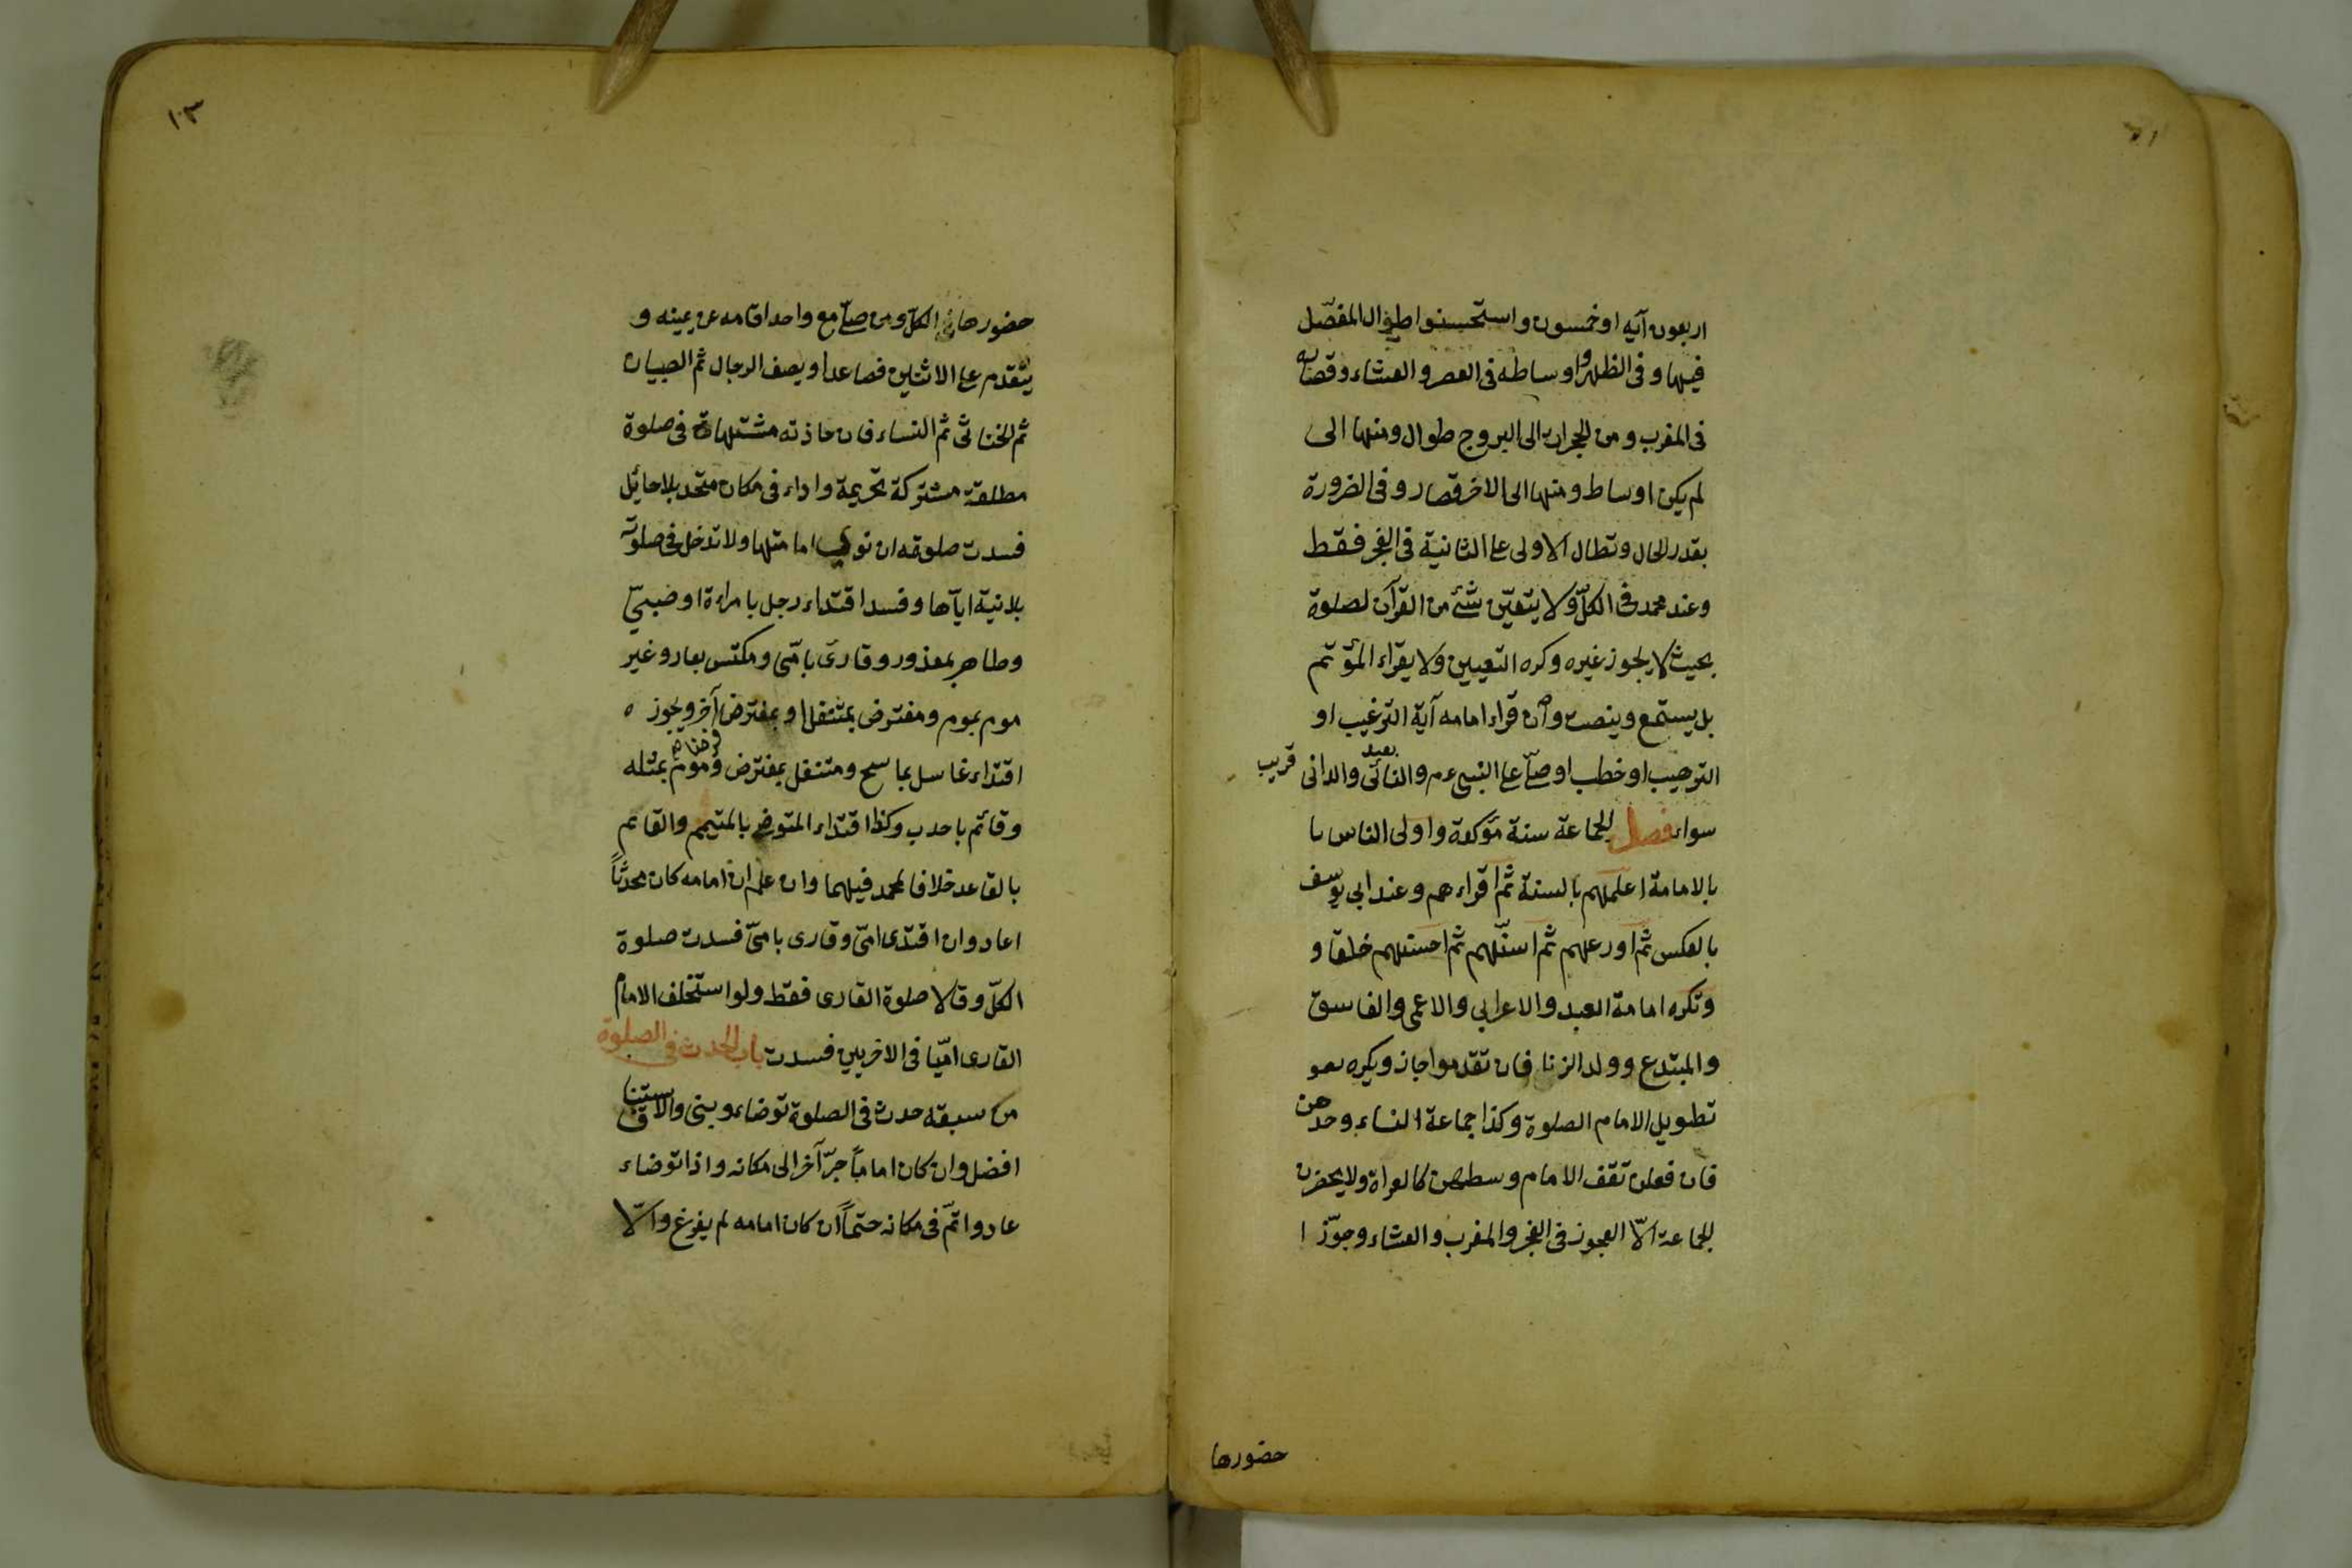 اربعون آيه او خمسون واستحسنوا طوال المفصّل
فيها وفى الظهر واوساطه فى العصر والعشاء وقصاره
فى المغرب ومن الحجرات الى البروج طوال ومنها الى
لم يكن اوساط ومنها الى الاخر قصار وفى الضرورة
بقدر الحال وتطال الاولى على الثانية فى الفجر فقط
وعند محمد فى الكلّ ولا يتعيّن شئ من القرآن لصلوة
بحيث لا يجوز غيره وكره التعيين ولا يقراء المؤتم
بل يستمع وينصت وان قراء امامه آية الترغيب او
الترهيب او خطب او صلّى على النبى عم والنائى والدانى
بعيد
قريب
سواء فصل الجماعة سنة مؤكدة واولى الناس
بالامامة اعلمهم بالسنة ثم اقراءهم وعند ابى يوسف
بالعكس ثم اورعهم ثم اسنّهم ثم احسنهم خلقا و
وتكره امامة العبد والاعرابى والاعمى والفاسق
والمبتدع وولد الزنا فان تقدموا جاز ويكره
تطويل الامام الصلوة وكذا جماعة النساء وحدهن
فان فعلن تقف الامام وسطهن كالعراة ولا يحضرن
الجماعة الّا العجوز فى الفجر والمغرب والعشاء وجوّزا
حضورها
١٠٣
حضورها فى الكلّ ومن صلّى مع واحد اقامه عن يمينه و
يتقدم على الاثنين فصاعدا ويصف الرجال ثم الصبيان
ثم الخناثى ثم النساء فان حاذته مشتهاة فى صلوة
مطلقة مشتركة تحريمة واداء فى مكان متحد بلا حائل
فسدت صلوته ان نوى امامتها ولا تدخل فى صلوته
بلا نية اياها وفسد اقتداء رجل بامراءة او صبىّ
وطاهر بمعذور وقارئ بامّى ومكتس بعار وغير
موم بموم ومفترض بمتنفل او بمفترض آخر ويجوز
اقتداء غاسل بماسح ومتنفل بمفترض وموم بمثله
وقائم باحدب وكذا اقتداء المتوضى بالمتيمم والقائم
بالقاعد خلافا لمحمد فيهما وان علم ان امامه كان محدثاً
اعاد وان اقتدى امّى وقارى بامىّ فسدت صلوة
الكلّ وقالا صلوة القارى فقط ولو استخلف الامام
القارى امّيا فى الاخريين فسدت باب الحدث فى الصلوة
من سبقه حدث فى الصلوة توضاء وبنى والاستيناف
افضل وان كان اماماً جرّ آخر الى مكانه واذا توضاء
عاد واتمّ فى مكانه حتماً ان كان امامه لم يفرغ والّا